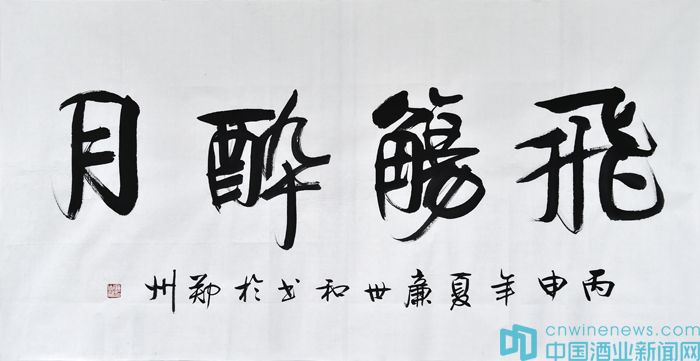 飛觴醉月
丙申年夏廉世和书於郑州
cnwinenews.com
中国酒业新闻网